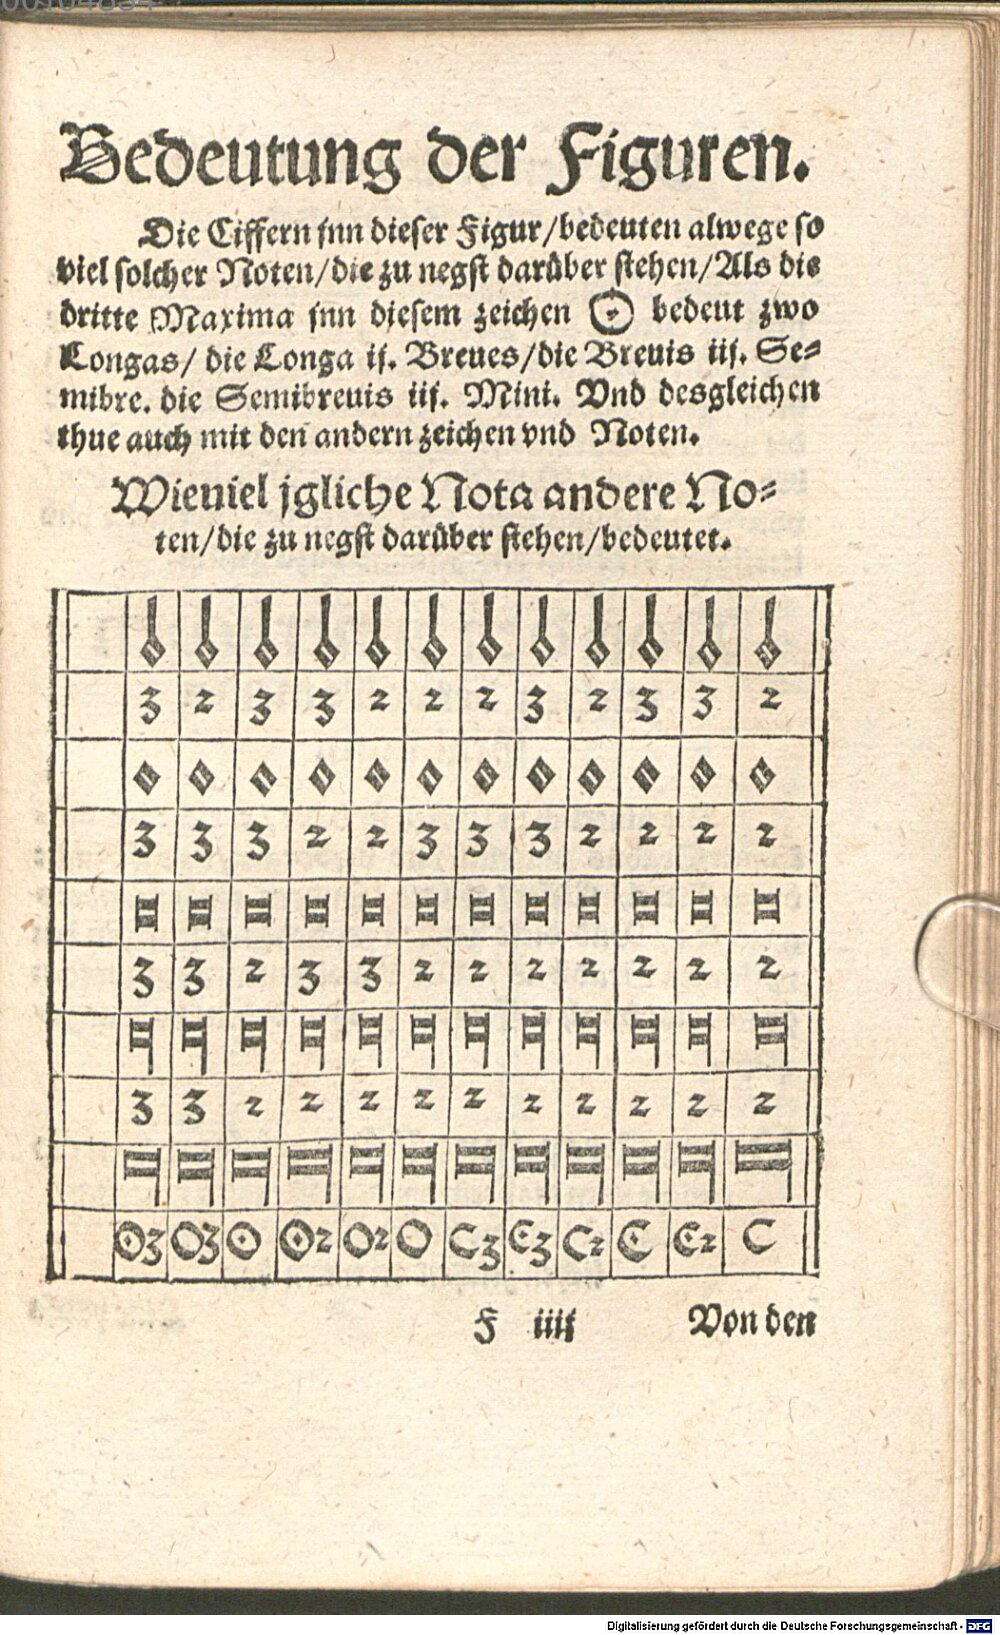 00104834
Bedeutung der Figuren.
Die Ciffern jnn dieser Figur/bedeuten alwege so
viel solcher Noten/die zu negst darüber stehen/Als die
dritte Maxima jnn diesem zeichen ʘ bedeut zwo
Longas/ die Longa ij. Breues/die Breuis iij. Se⸗
mibre. die Semibreuis iij. Mini. Vnd desgleichen
thue auch mit den andern zeichen vnd Noten.
Wieuiel jgliche Nota andere No⸗
ten/die zu negst darüber stehen/bedeutet.
3 2 3 3 2 2 2 3 2 3 3 2
3 3 3 2 2 3 3 3 2 2 2 2
3 3 2 3 3 2 2 2 2 2 2 2
3 3 2 2 2 2 2 2 2 2 2 2
ʘ3 O3 ʘ ʘ2 O2 O C3 Ꞓ3 C2 Ꞓ Ꞓ2 C
F iiij Von den
Digitalisierung gefördert durch die Deutsche Forschungsgemeinschaft - DFG